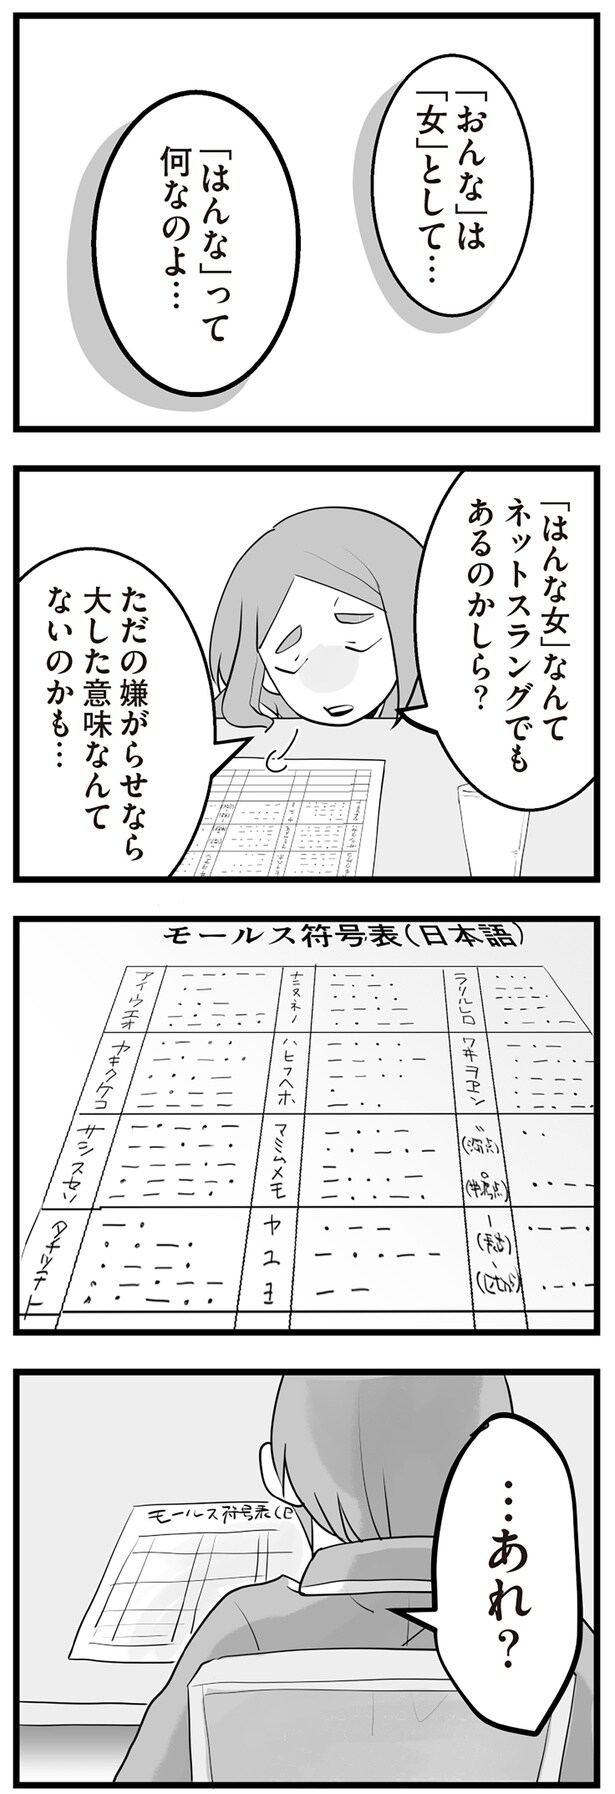 「おんな」は
「女」として…
「はんな」って
何なのよ…
「はんな女」なんて
ネットスラングでも
あるのかしら？
ただの嫌がらせなら
大した意味なんて
ないのかも…
モールス符号表(日本語)
アイウエオ
ナニヌネノ
ラリルレロ
カキクケコ
ハヒフヘホ
ワヰヲヱン
サシスセソ
マミムメモ
゛(濁点)
゜(半濁点)
タチツテト
ヤユヨ
モールス符号表(日
…あれ？